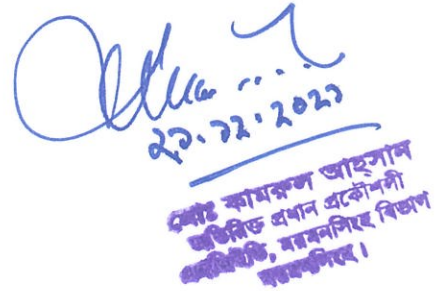 ২১.১২.২০২১
মোঃ কামরুল আহসান
অতিরিক্ত প্রধান প্রকৌশলী
এলজিইডি, ময়মনসিংহ বিভাগ
ময়মনসিংহ।